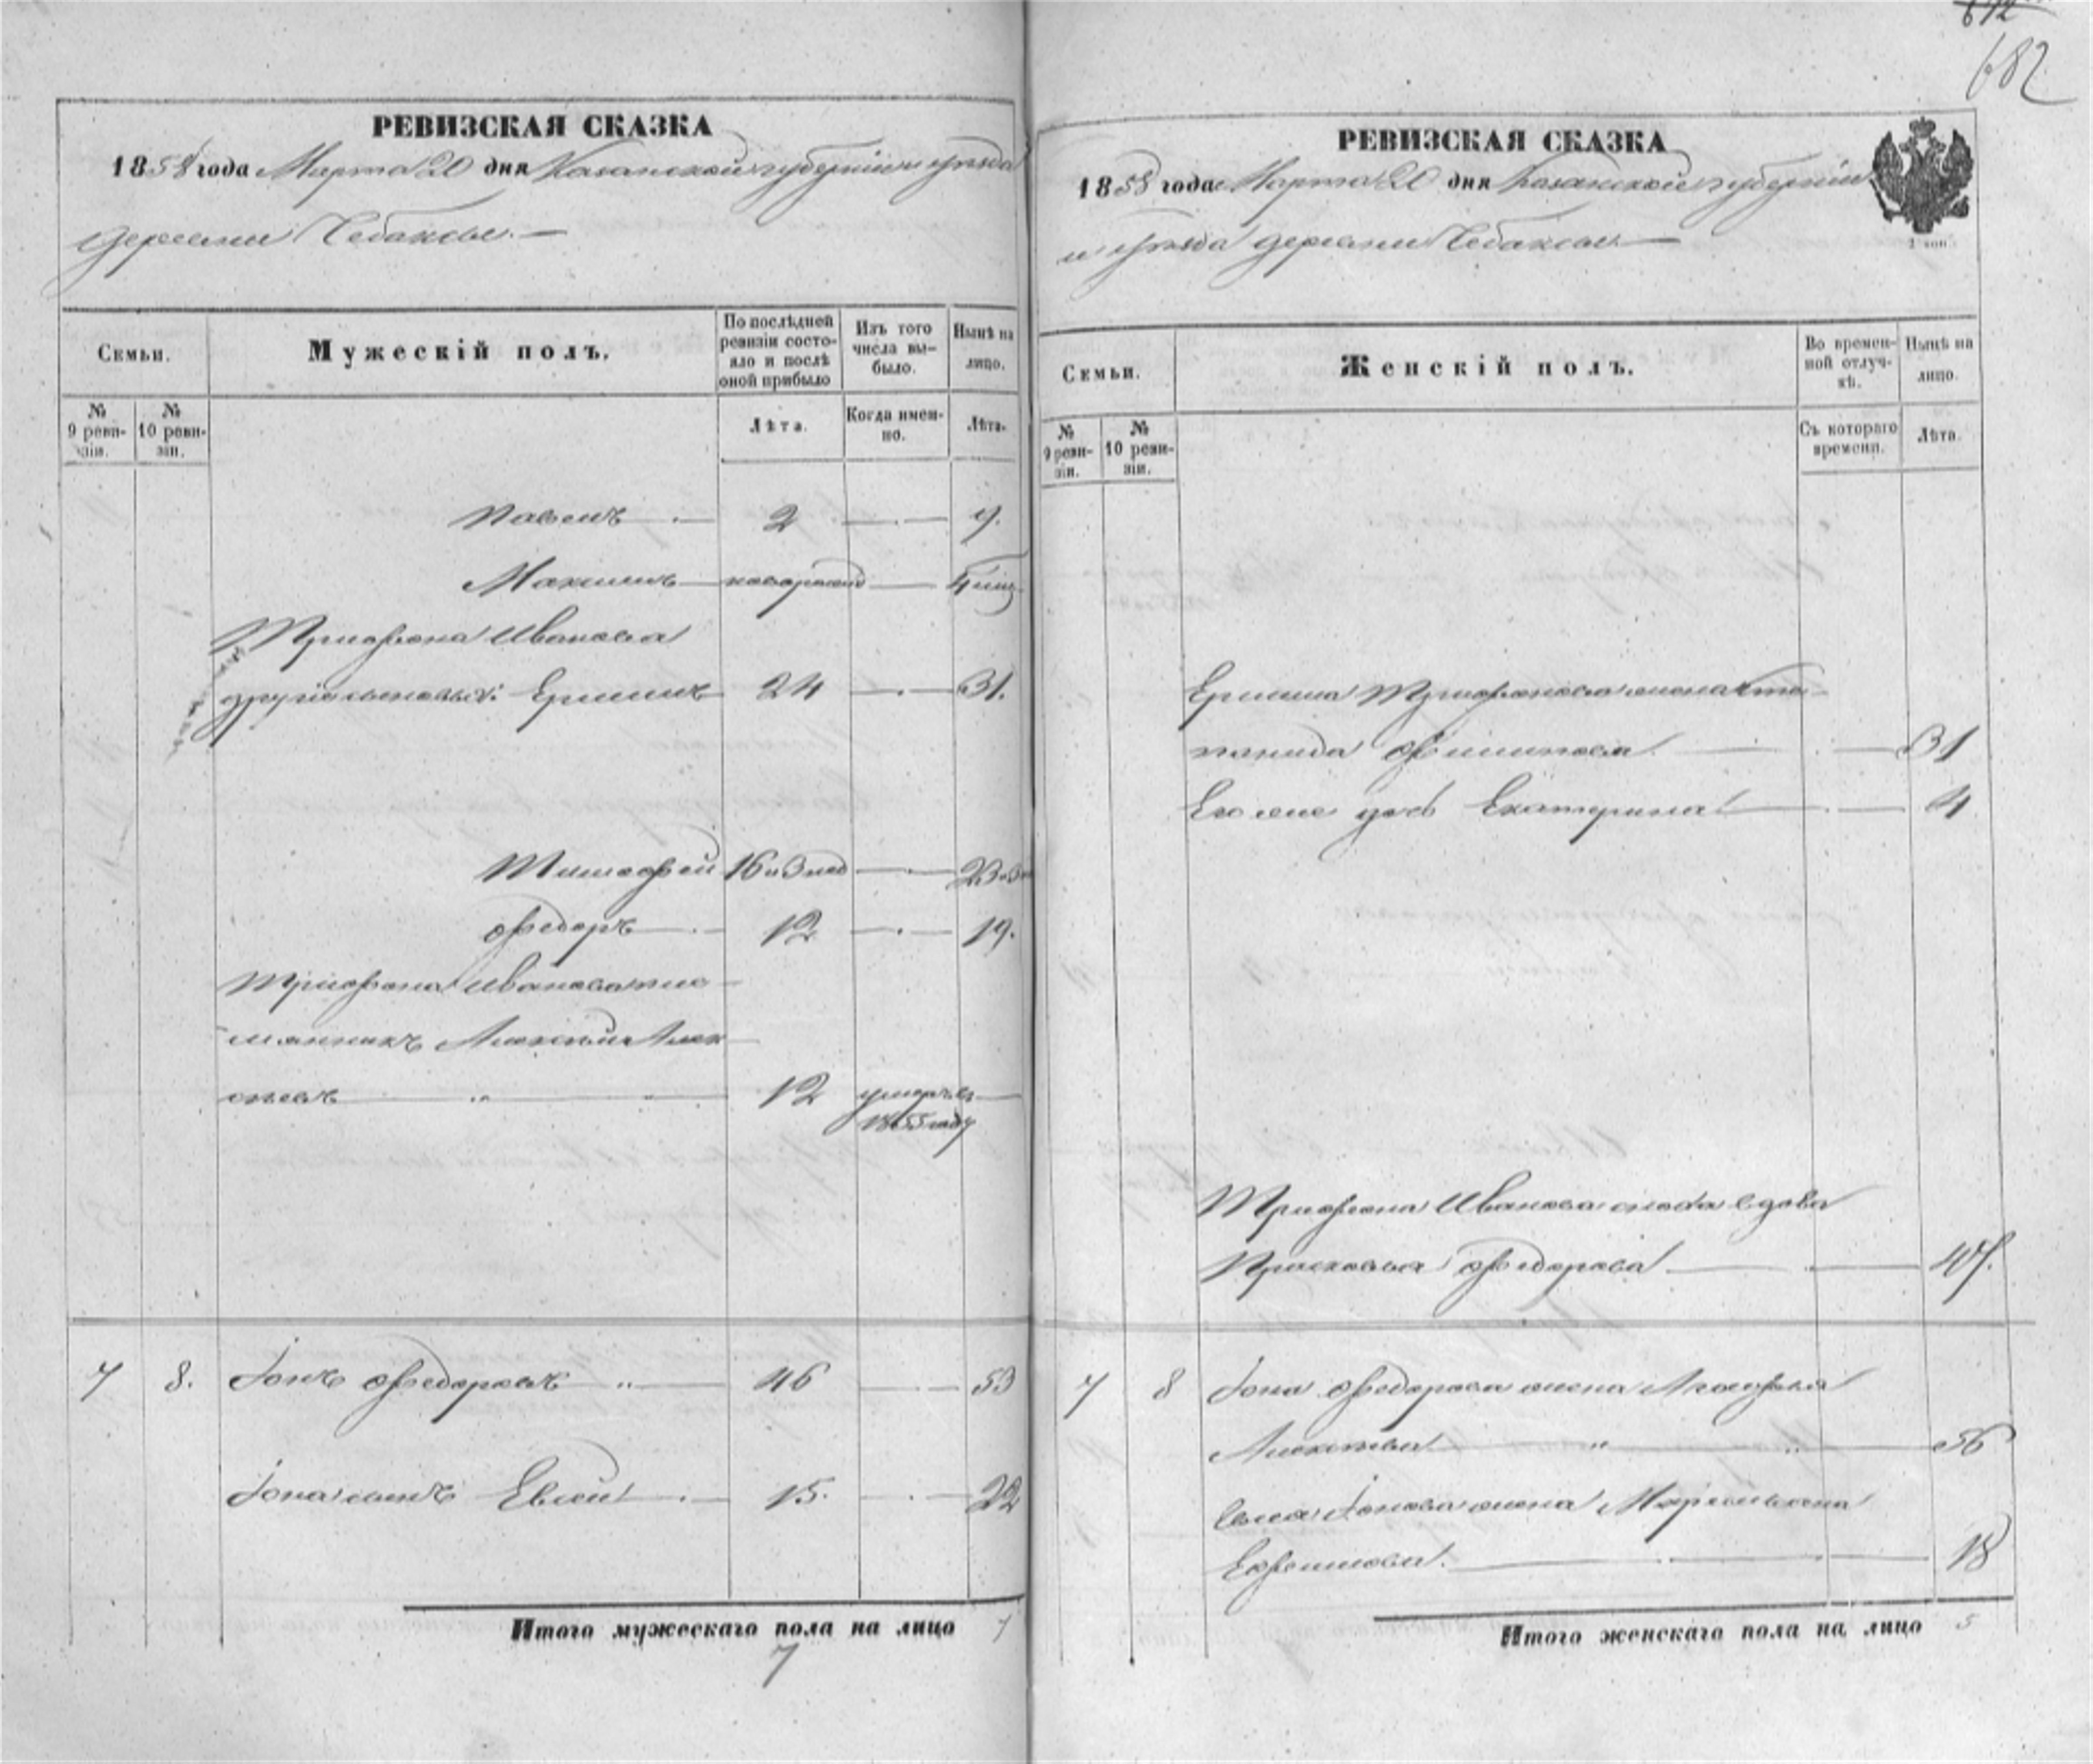 612
682
РЕВИЗСКАЯ СКАЗКА
1858 года Марта 20 дня Казанской губернiи и уѣзда
деревни Чебаксы.—
Семьи.
Мужескiй полъ.
По послѣдней ревизiи состояло и послѣ оной прибыло
Изъ того числа выбыло.
Нынѣ на лицо.
№ 9 ревизiи.
№ 10 ревизiи.
Лѣта.
Когда именно.
Лѣта.
Павелъ 2 9.
Максимъ новорожд
Трифона Иванова
другiе сыновья: Ермилъ 24 31.
Тимофей 16 23
Федоръ 12 19.
Трифона Иванова пле-
мянникъ Алексѣй Алек
сѣевъ 12 умеръ въ
1855 году
7 8. Iонъ Федоровъ 46 53
Iона сынъ Евсей 15. 22
Итого мужескаго пола на лицо 7
7
РЕВИЗСКАЯ СКАЗКА
1858 года Марта 20 дня Казанской губернiи
и уѣзда деревни Чебаксы.—
Семьи.
Женскiй полъ.
Во временной отлучкѣ.
Нынѣ на лицо.
№ 9 ревизiи.
№ 10 ревизiи.
Съ котораго времени.
Лѣта.
Ермила Трифонова жена Сте-
панида Филипова 31
Его же дочь Екатерина 4
Трифона Иванова сноха вдова
Прасковья Федорова 47.
7 8 Iона Федорова жена Агафья
Алексѣева 56
Iонова жена
Ефимова. 18
Итого женскаго пола на лицо 5